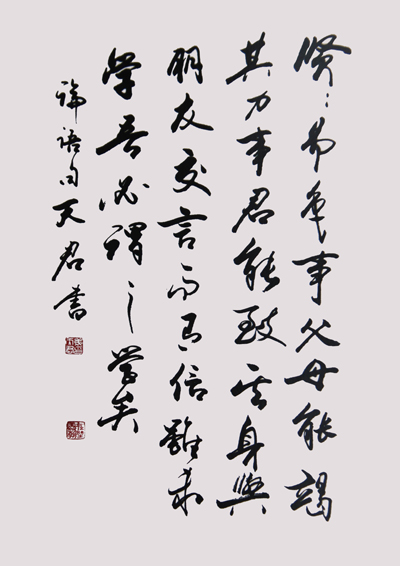 贤〻易色事父母能竭
其力事君能致其身與
朋友交言而有信雖未
學吾必謂之學矣
論語句天君書